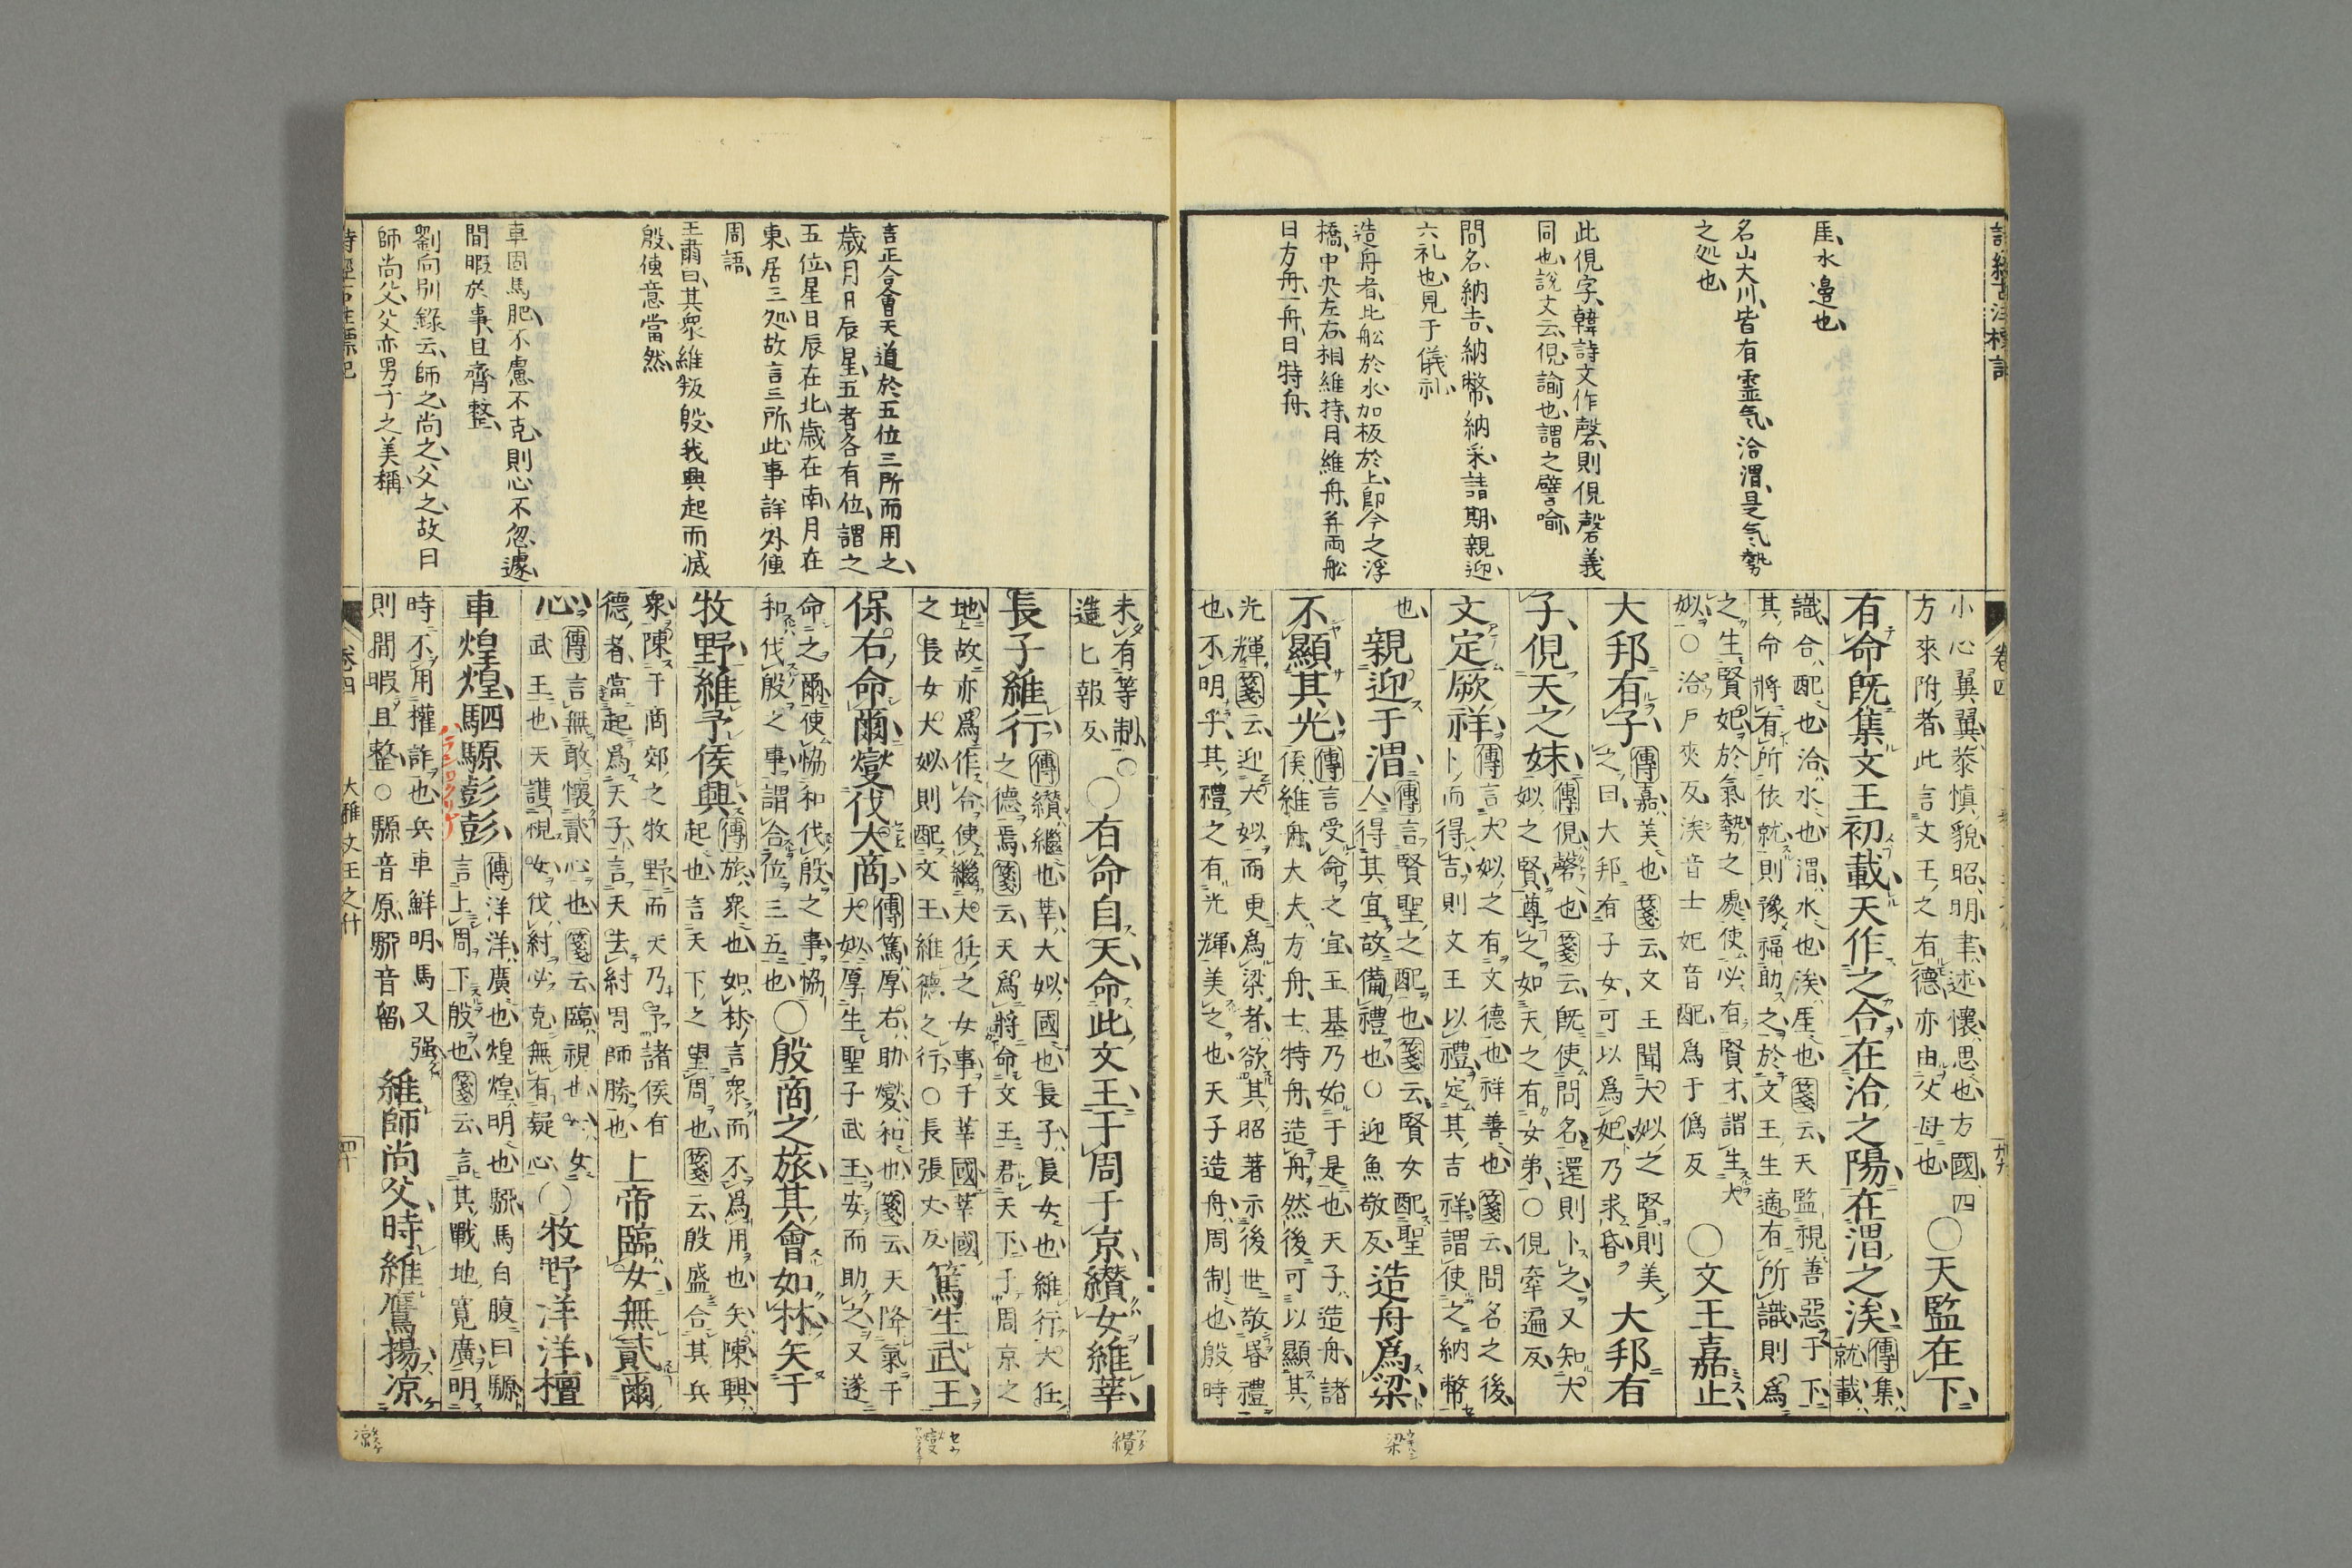 厓、水邊也、
名山大川、皆有霊气、洽渭、是气勢
之処也、
此俔字、韓詩文作磬、則俔磬義
同也、說文云、俔、諭也、謂之譬喻、
問名、納吉、納幣、納采、請期、親迎、
六礼也、見于儀礼、
造舟者、比舩於水、加板於上、即今之浮
橋、中央左右相維持、曰維舟、并両舩
曰方舟、一舟、曰特舟、
卷四
小心翼翼、恭慎貌、昭、明、聿、述、懷、思也、方國、四
方來附者、此言文王之有德、亦由父母也
〇天監在下、
有命既集文王初載、天作之合、在洽之陽、在渭之涘、
傳集、就、載、
識、合、配也、洽、水也、渭、水也、涘、厓也、箋云、天監視善惡于下、
其命將有所依就、則豫福助之、於文王、生適有所識、則爲
之生賢妃、於氣勢之處、使必有賢才、謂生大
姒、〇洽戶夾反、涘音士妃音配、爲于僞反
〇文王嘉止、
大邦有子、
傳嘉、美也、箋云、文王聞大姒之賢、則美
之曰、大邦有子女、可以爲妃、乃求昏、
大邦有
子、俔天之妹、
傳俔、磬也、箋云、既使問名、還則卜之、又知大
姒之賢、尊之如天之有女弟、〇俔牽遍反、
文定厥祥、
傳言大姒之有文德也祥善也箋云、問名之後、
卜而得吉、則文王以禮定其吉祥、謂使之納幣
也、
親迎于渭、
傳言賢聖之配也、箋云、賢女配聖
人、得其宜、故備禮也〇迎魚敬反、
造舟爲梁
不顯其光、
傳言受命之宜、王基乃始于是也、天子造舟、諸
侯維舟、大夫方舟、士特舟、造舟、然後可以顯其
光輝、箋云、迎大姒而更爲梁者、欲其昭著示後世、敬昏禮
也、不明乎、其禮之有光輝、美之也、天子造舟、周制也、殷時
未有等制、〇
造匕報反、
〇有命自天、命此文王、于周于京、纘女維莘、
長子維行、
傳纘繼也、莘、大姒國也、長子、長女也、維行、大任
之德焉、箋云、天爲將命文王、君天下、于周京之
地、故亦爲作合、使繼大任之女事、于莘國、莘國
之長女大姒、則配文王、維德之行、〇長張丈反、
篤生武王、
保右命爾、燮伐大商、
傳篤、厚、右、助、燮、和也、箋云、天降氣于
大姒、厚生聖子武王、安而助之、又遂
命之爾、使協和伐殷之事、協
和伐殷之事、謂合位三五也、
〇殷商之旅、其會如林、矢于
牧野、維予侯興、
傳旅、衆也、如林、言衆而不爲用也、矢、陳、興、
起也、言天下之望周也、箋云、殷盛合其兵
衆、陳于商郊之牧野、而天乃予諸侯有
德者、當起爲天子、言天去紂周師勝也
上帝臨女、無貳爾
心、
傳言無敢懷貳心也、箋云、臨、視也、女、女
武王也、天護視女、伐紂必克、無有疑心、
〇牧野洋洋、檀
車煌煌、駟騵彭彭、
傳洋洋、廣也、煌煌、明也、駵馬白腹曰騵
言上周下殷也、箋云、言其戰地、寬廣、明
時、不用權詐也、兵車鮮明、馬又强、
則閒暇且整、〇騵音原、駵音留、
維師尚父、時維鷹揚、凉
言正合會天道於五位三所而用之、
歲、月、日、辰、星、五者各有位、謂之
五位、星日辰在北、歲在南、月在
東、居三処、故言三所、此事詳外傳
周語、
王肅曰、其衆維叛殷、我興起而滅
殷、傳意當然、
車固馬肥、不慮不克、則心不忽遽、
間暇於事、且齊整、
劉向別錄云、師之尚之、父之、故曰
師尚父、父亦男子之美稱、
詩經古註標記
卷四
大雅文王之什
四十
梁
纘
燮
凉